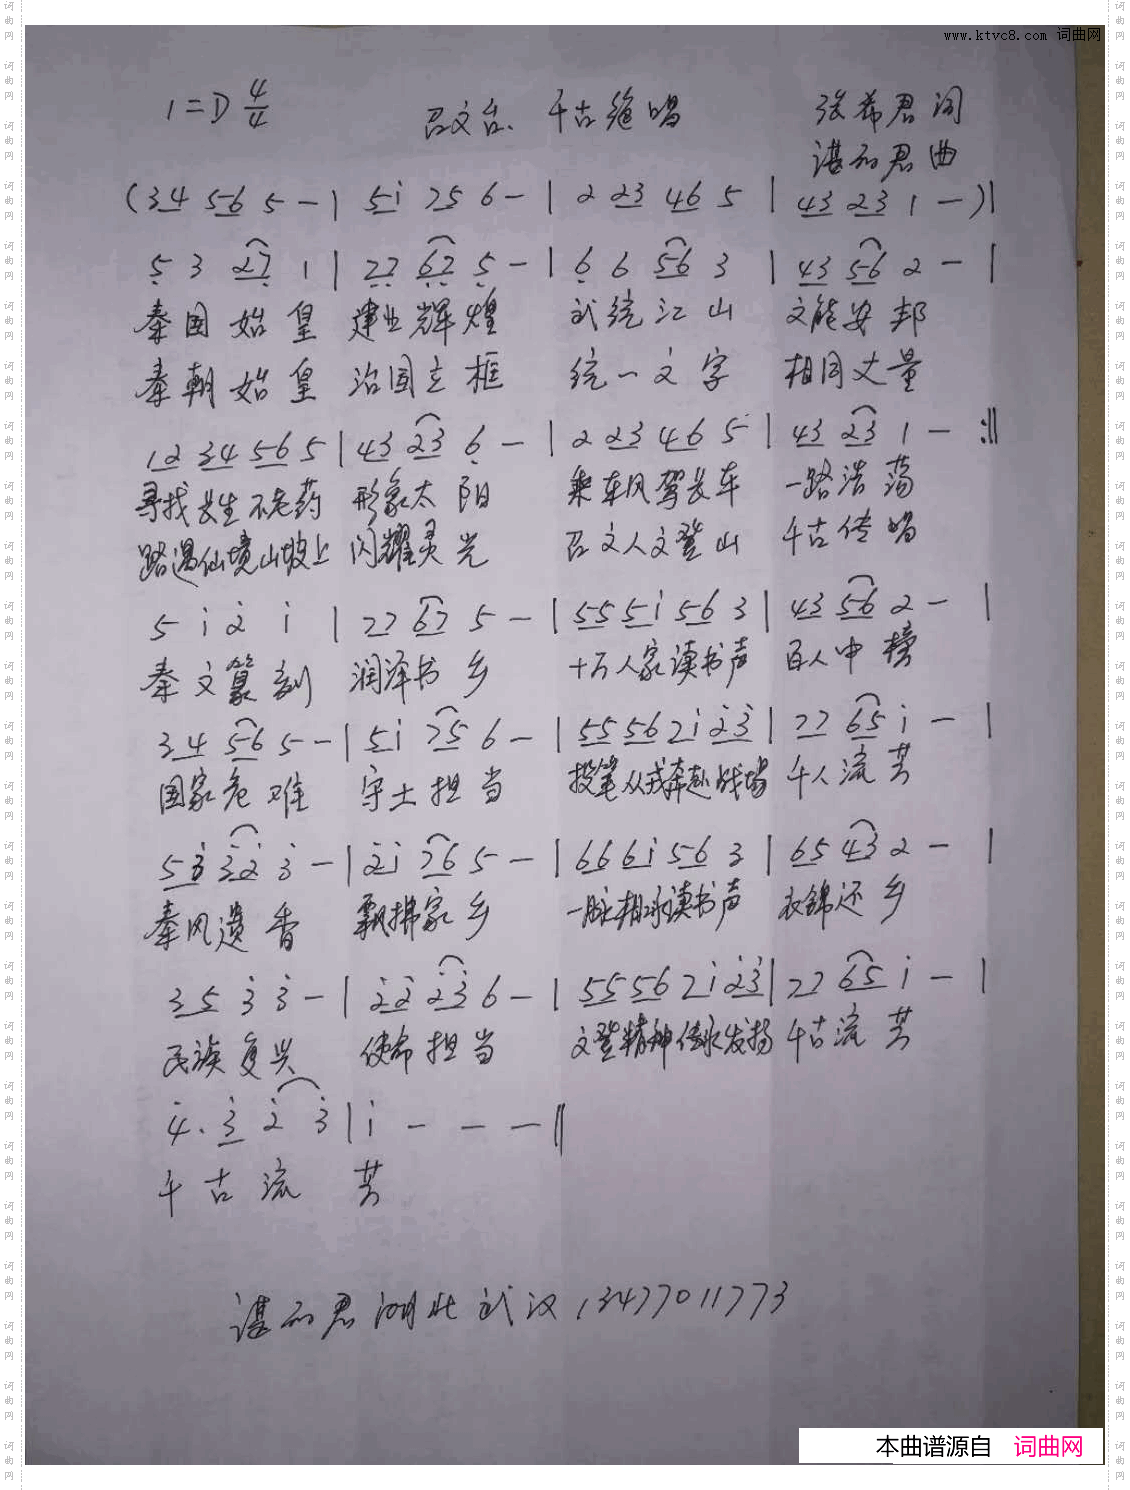 www.ktvc8.com 词曲网
1=D 4/4 召文台、千古绝唱 张希君词
谌丽君曲
(34 56 5 - | 5i 75 6 - | 2 23 46 5 | 43 23 1 - )|
5 3 27 1 | 77 67 5 - | 6 6 56 3 | 43 56 2 - |
秦国始皇 建业辉煌 武统江山 文能安邦
秦朝始皇 治国立框 统一文字 相同丈量
12 34 56 5 | 43 23 6 - | 2 23 46 5 | 43 23 1 - :||
寻找长生不老药 形象太阳 乘车风驾长车 一路浩荡
路遇仙境山坡上 闪耀灵光 召文人文登山 千古传唱
5 i 2 i | 77 67 5 - | 55 5i 56 3 | 43 56 2 - |
秦文篆刻 润泽书乡 十万人家读书声 百人中榜
34 56 5 - | 5i 75 6 - | 55 56 7i 23 | 77 65 i - |
国家危难 守土担当 投笔从戎奔赴战场 千人流芳
53 32 3 - | 2i 76 5 - | 66 6i 56 3 | 65 43 2 - |
秦风遗香 飘拂家乡 一脉相承读书声 衣锦还乡
35 3 3 - | 22 23 6 - | 55 56 7i 23 | 77 65 i - |
民族复兴 使命担当 文登精神传承发扬 千古流芳
4. 3 2 3 | i - - - ||
千古流芳
谌丽君湖北武汉13477011773
本曲谱源自 词曲网